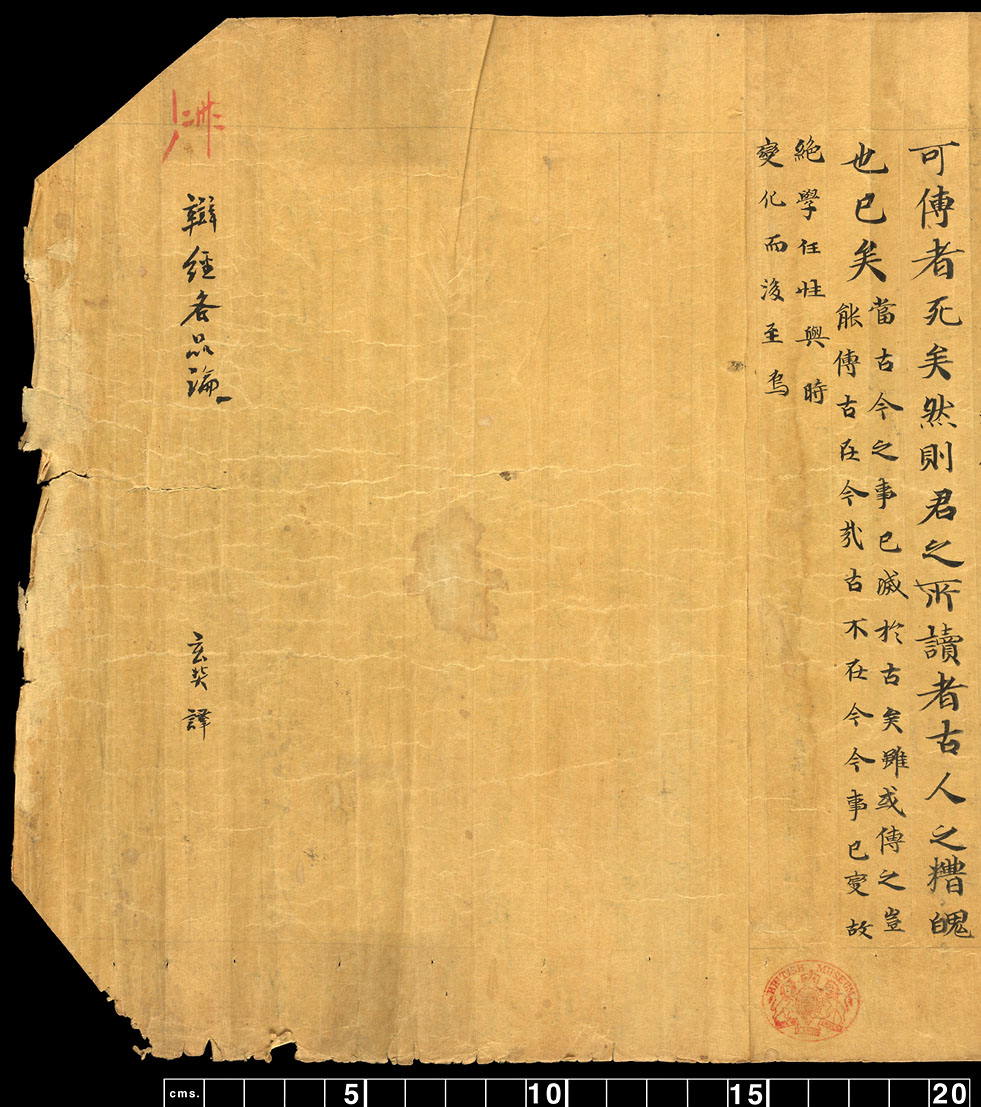 可傳者死矣然則君之所讀者古人之糟魄
也已矣
當古今之事已滅於古矣雖或傳之豈
能傳古在今哉古不在今今事已變故
絶學任性與時
變化而後至焉
辯經各品論
玄奘 譯
BRITISH MUSEUM
cms. 5 10 15 20